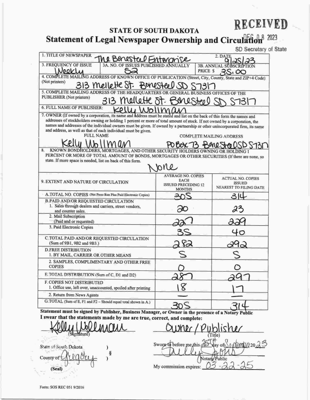 RECEIVED
2023
SD Secretary of State
STATE OF SOUTH DAKOTA
Statement of Legal Newspaper Ownership and Circulation
1. TITLE OF NEWSPAPER The Bonesteel Enterprise
2. DATE 9/25/23
3. FREQUENCY OF ISSUE Weekly
3A. NO. OF ISSUES PUBLISHED ANNUALLY 52
3B. ANNUAL SUBSCRIPTION PRICE $ 35.00
4. COMPLETE MAILING ADDRESS OF KNOWN OFFICE OF PUBLICATION (Street, City, County, State and ZIP+4 Code) (Not Printers)
313 Mellette St. Bonesteel SD 57317
5. COMPLETE MAILING ADDRESS OF THE HEADQUARTERS OR GENERAL BUSINESS OFFICES OF THE PUBLISHER (Not printers)
313 Mellette St. Bonesteel SD 57317
6. FULL NAME OF PUBLISHER: Kelly Wollman
7. OWNER (If owned by a corporation, its name and address must be stated and list on the back of this form the names and addresses of stockholders owning or holding 1 percent or more of total amount of stock. If not owned by a corporation, the names and addresses of the individual owners must be given. If owned by a partnership or other unincorporated firm, its name and address, as well as that of each individual must be given.
FULL NAME COMPLETE MAILING ADDRESS
Kelly Wollman PO Box 73 Bonesteel SD 57317
8. KNOWN BONDHOLDERS, MORTGAGEES, AND OTHER SECURITY HOLDERS OWNING OR HOLDING 1 PERCENT OR MORE OF TOTAL AMOUNT OF BONDS, MORTGAGES OR OTHER SECURITIES (If there are none, so state. If more space is needed, list on back of this form.
None
9. EXTENT AND NATURE OF CIRCULATION
AVERAGE NO. COPIES EACH ISSUED PRECEDING 12 MONTHS
ACTUAL NO. COPIES ISSUED NEAREST TO FILING DATE
A. TOTAL NO. COPIES 305 314
B. PAID AND/OR REQUESTED CIRCULATION
1. Sales through dealers and carriers, street vendors, and counter sales. 20 23
2. Mail Subscription (Paid and or requested) 227 229
3. Paid Electronic Copies 35 40
C. TOTAL PAID AND/OR REQUESTED CIRCULATION (Sum of 9B1, 9B2 and 9B3) 282 292
D. FREE DISTRIBUTION
1. BY MAIL, CARRIER OR OTHER MEANS 5 5
2. SAMPLES, COMPLIMENTARY AND OTHER FREE COPIES 0 0
E. TOTAL DISTRIBUTION (Sum of C, D1 and D2) 287 297
F. COPIES NOT DISTRIBUTED
1. Office use, left over, unaccounted, spoiled after printing 18 17
2. Return from News Agents
G. TOTAL (Sum of E, F1 and F2 - Should equal total shown in A.) 305 314
Statement must be signed by Publisher, Business Manager, or Owner in the presence of a Notary Public
I swear that the statements made by me are true, correct, and complete:
Kelly Wollman Owner/Publisher
(Signature) (Title)
State of South Dakota )
County of Gregory )
Sworn to before me this 25th day of
(Notary Public)
(Seal) My commission expires: 03-22-25
Form: SOS REC 051 9/2016